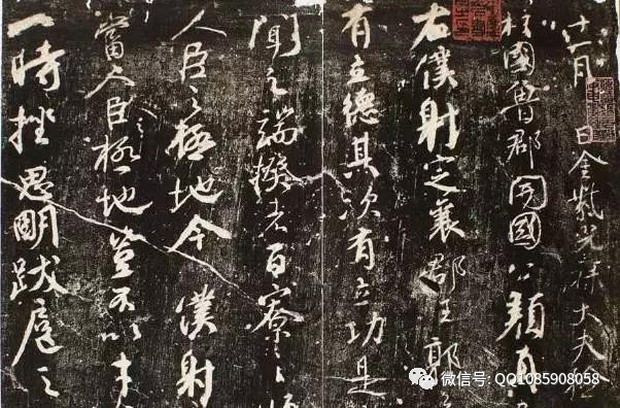 十一月 日金紫光祿大夫檢
柱國魯郡開國公顏真
右僕射定襄郡王郭
有立德其次有立功是
聞之端揆者百寮之師
人臣之極地今僕射
當人臣之極地豈不以才
一時挫思明跋扈之
微信号: QQ1085908058